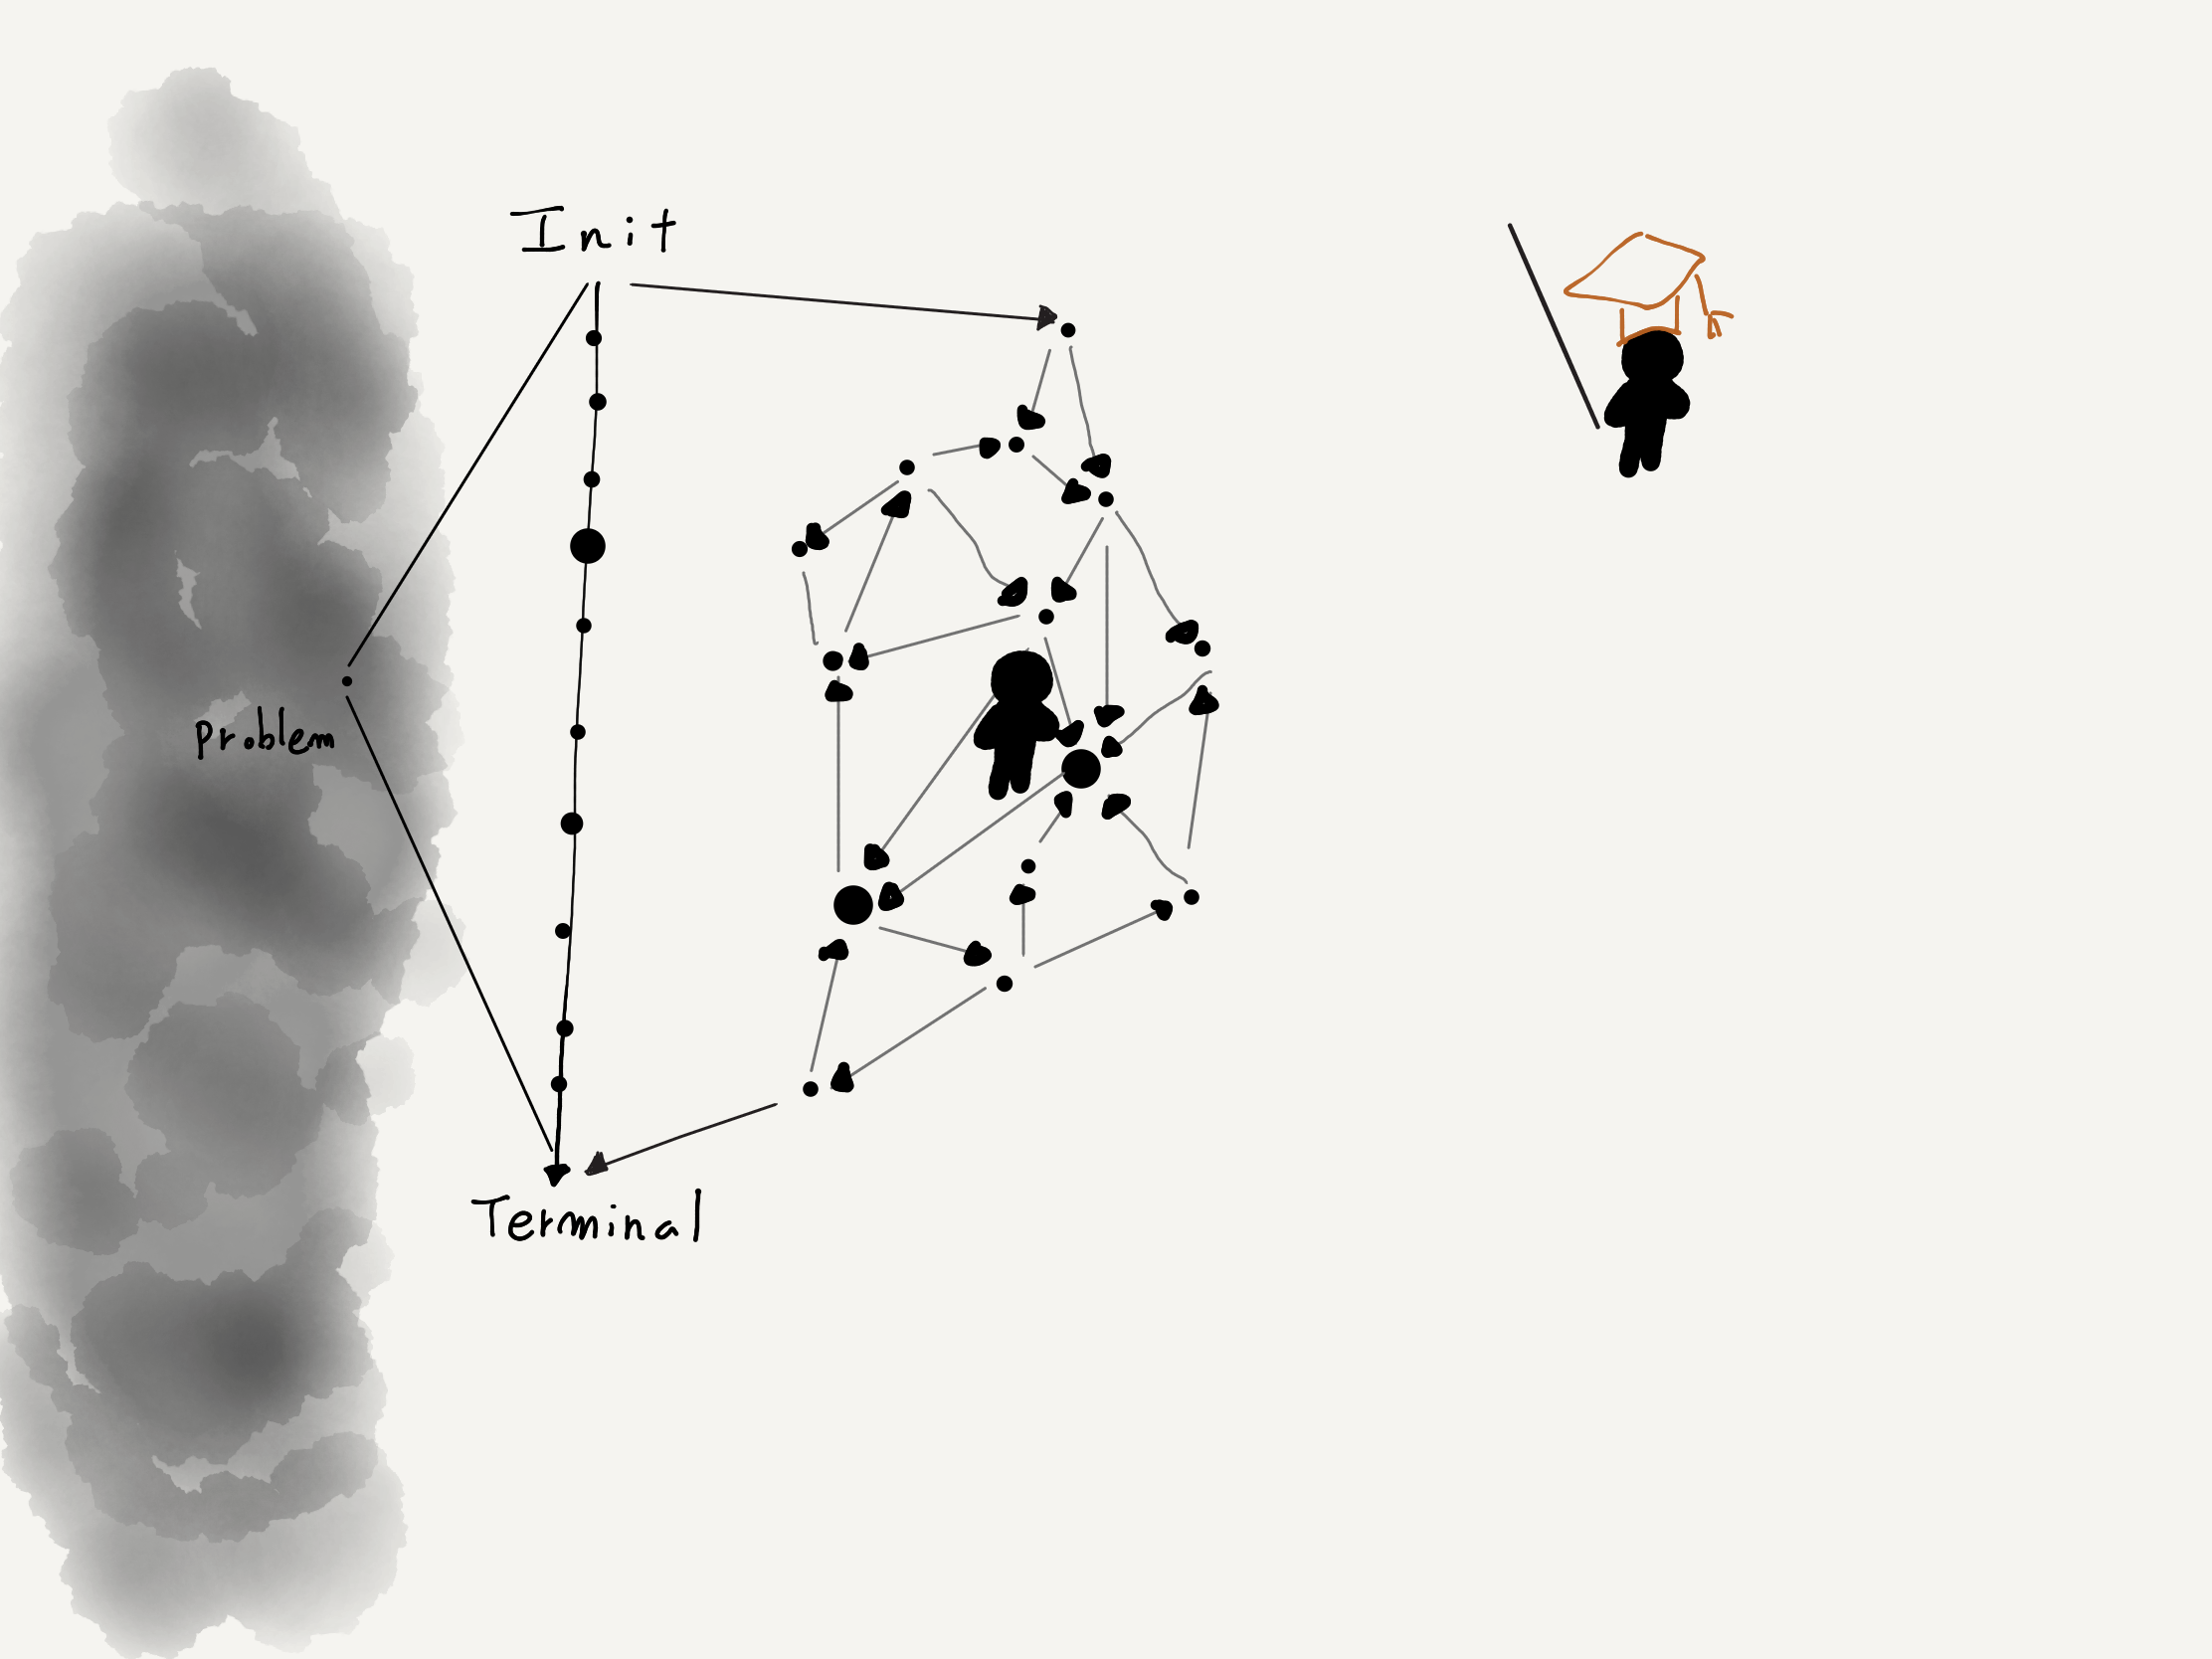 Init
Problem
Terminal